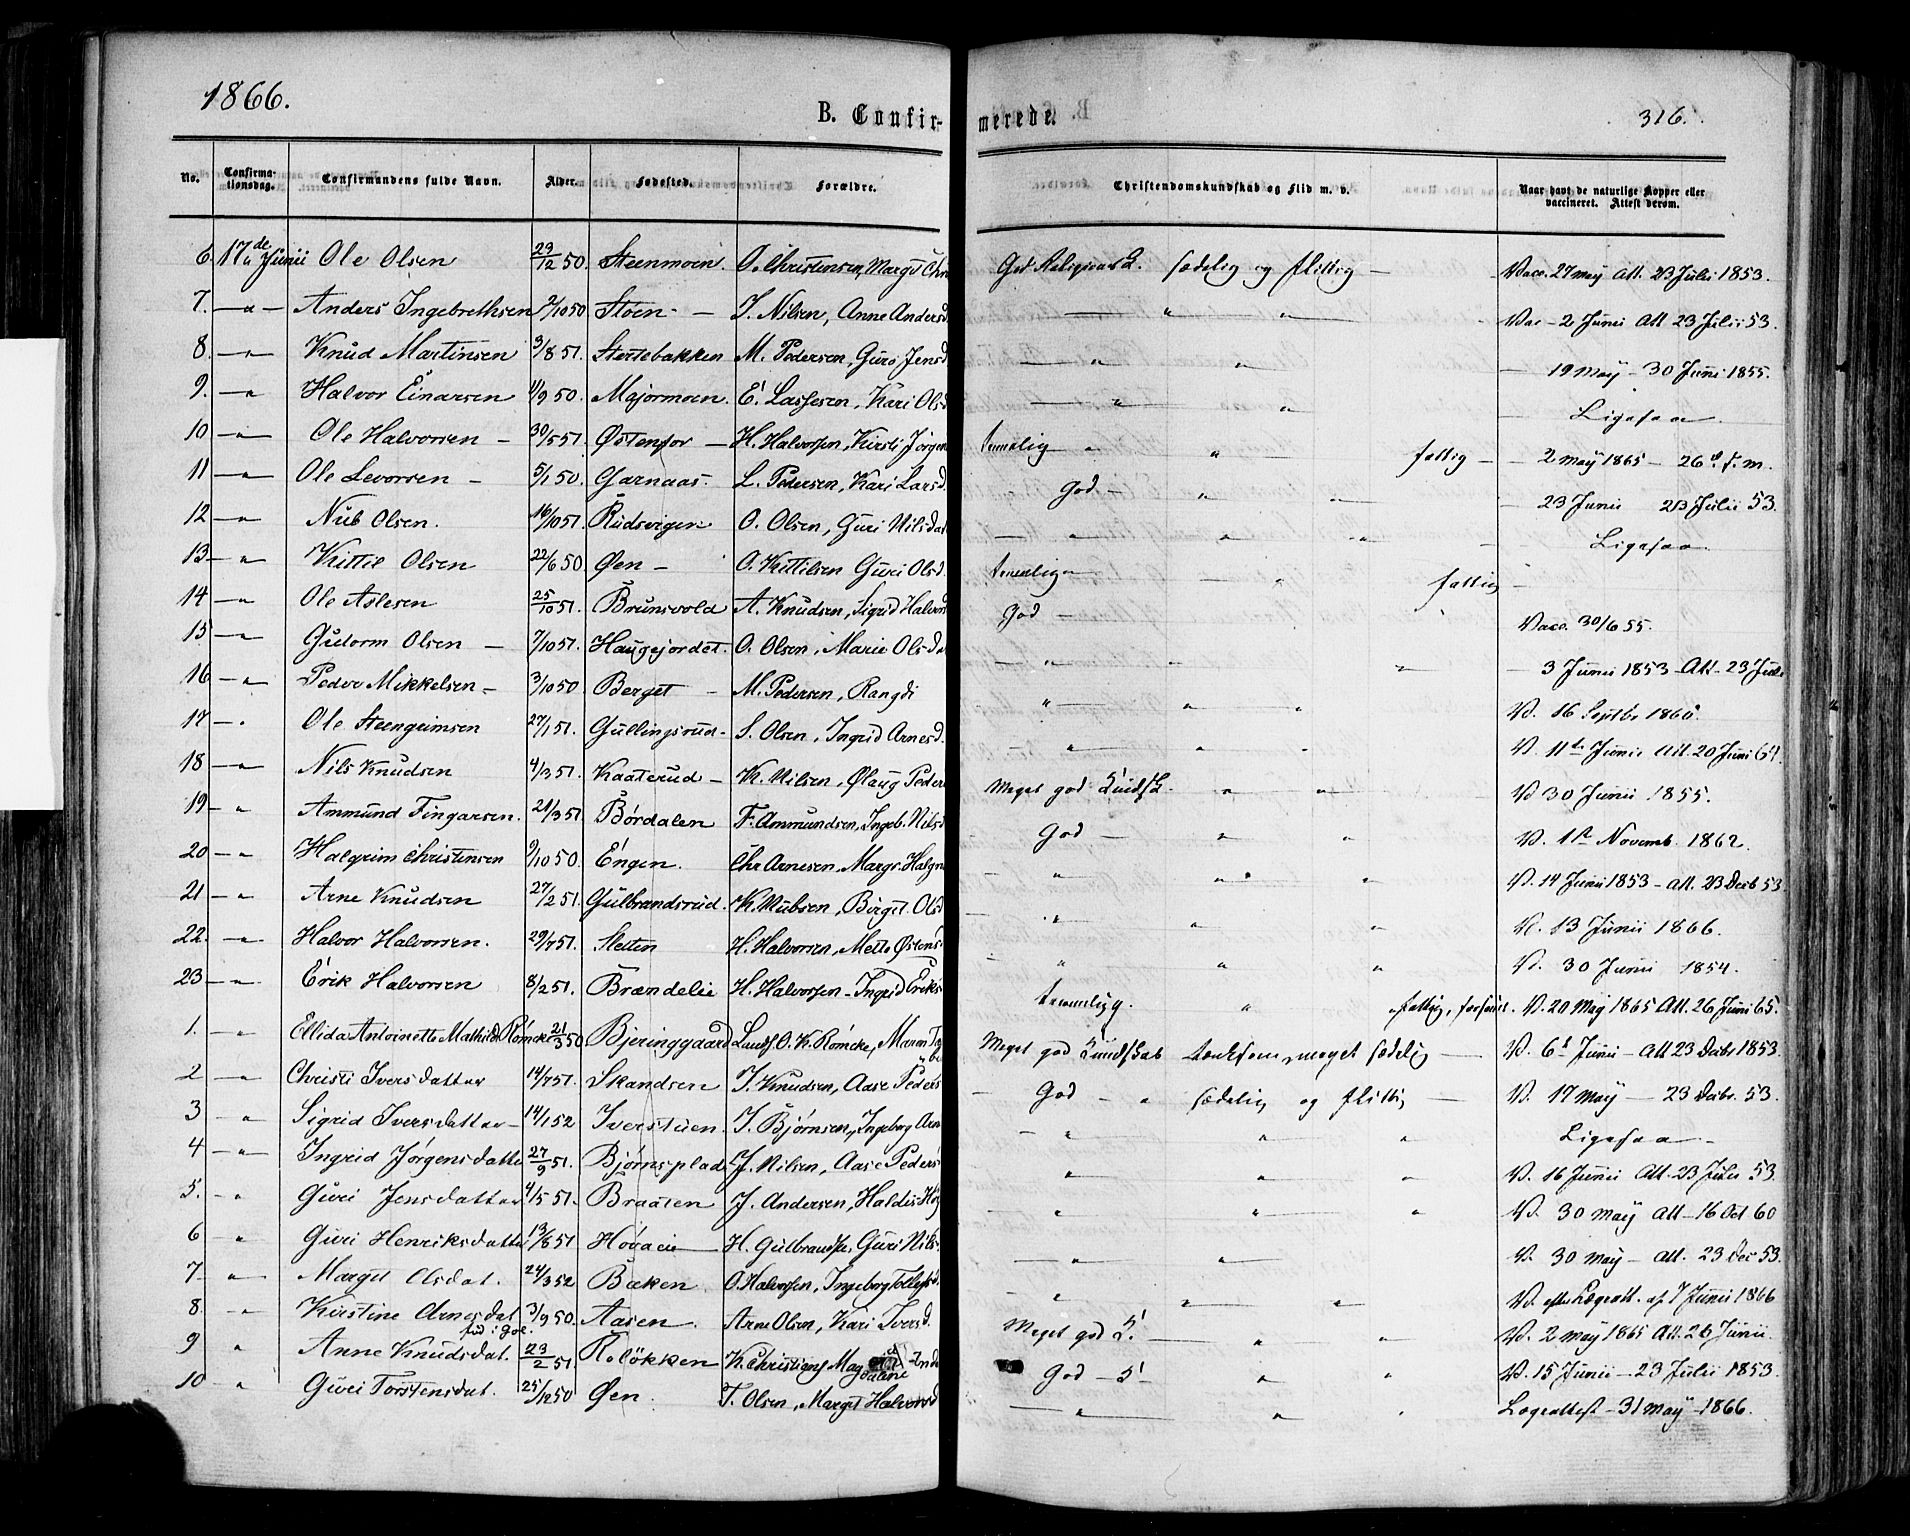 1866.
B. Confir-
merede.
316.
No.
Confirma-
tionsdag.
Confirmandens fulde Navn.
Alder.
Fødested.
Forældre.
Christendomskundskab og Flid m. v.
Naar havt de naturlige Kopper eller
vaccineret. Attest derom.
6. 17de Junii Ole Olsen 29/12 50. Steenmoen. O. Christensen, Margit Chr God Religionsk. sædelig og flittig — Vacc. 27 May Att. 23 Julii 1853.
7. —"— Anders Ingebrethsen 2/10 50 Støen — I. Nilsen, Anne Andersd. " " Vac — 2 Junii Att 23 Julii 53.
8. —" Knud Martinsen 3/8 51. Stertebakken M. Pedersen, Guro Jensd " " — 19 May — 30 Junii 1855.
9. —" Halvor Einarsen 4/9 50. Majormoen. E. Lassesen, Kari Olsd " " Ligesaa
10 —"— Ole Halvorsen — 30/5 51. Østenfor — H. Halvorsen, Kirsti Jørgen temelig " " fattig — 2 May 1865 — 26 d. s. m.
11 —"— Ole Levorsen — 5/1 50. Garnaas. L. Pedersen, Kari Larsd. God — " — 23 Junii 23 Julii 53.
12 —" Nub Olsen. 16/10 51. Rudsvigen O. Olsen, Guri Nilsdat — " " " — Ligesaa
13 —" Kittil Olsen 22/6 50. Øen — O. Kittilsen Guri Olsd. temelig — " fattig —
14 —" Ole Aslesen 25/10 51. Brunsvold A. Knudsen, Sigrid Halvors God — Vacc. 30/6 55.
15 —" Gudorm Olsen — 7/10 51. Haugejordet. O. Olsen, Marie Olsda — " " " — 3 Junii 1853 — Att. 23 Julii
16 —" Peder Mikkelsen — 3/10 50. Berget — M. Pedersen, Rangdi " " " V. 16 Septbr 1860.
17 —" Ole Steengrimsen 27/1 51. Gullingsrud — S. Olsen, Ingrid Arnesd. " " V. 11te Junii Att. 20 Juni 64.
18 —" Nils Knudsen 4/3 51. Kaaterud — K. Nilsen, Ølaug Peder Meget god Kundsk. " " V. 30 Junii 1855.
19 —" Ammund Fingarsen. 21/3 51 Børdalen F. Ammundsen, Ingeb. Nilsd God — " " V. 1st Novemb. 1862.
20 —" Halgrim Christensen 9/10 50. Engen. Chr Arnesen, Margr. Halgri — " " " V. 14 Junii 1853 — Att. 23 Decb 53
21 —" Arne Knudsen 27/2 51. Gulbrandsrud. K. Nubsen, Birget Olsd — " " " V. 13 Junii 1866.
22. —" Halvor Halvorsen. 29/7 51. Sletten H. Halvorsen, Mette Østens — " " " V. 30 Junii 1854.
23 —" Erik Halvorsen 8/2 51. Brændelie H. Halvorsen — Ingrid Eriks temelig. " fattig, V. 20 May 1865 Att. 26 Juni 65.
1. " Ellida Antoinette Mathilde Römcke 21/3 50 Bjeringgaard O. K. Römcke, Maren Meget god Kundskab tænksom, meget sædelig — V. 6t Junii — Att 23 Decbr 1853.
2 — " Christi Iversdatter 14/7 51. Skandsen I. Knudsen, Aase Peders — God — " sædelig og flittig — V. 17 May — 23 Decbr. 53.
3 " Sigrid Iversdatter — 14/1 52 Iverstuen. I. Bjørnsen, Ingeborg Arn — " " " Ligesaa —
4 — " Ingrid Jørgensdatte 27/9 51. Bjørnsplad J. Nilsen, Aase Peders " " " V. 16 Junii Att. 23 Julii 53.
5. " Guri Jensdatter 4/5 51. Braaten J. Andersen, Haldis " " " V. 30 May Att — 16 Oct 60
6 " Guri Henriksdatter 13/8 51 Hovaen H. Gulbrands, Guri Nils. — " " V. 30 May — Att. 23 Dec 53.
7 — " Margit Olsdat. 24/3 52 Baken O. Halvorsen, Ingeborg Tollefsd. — " " " V. efter Lægeatt. af 7 Junii 1866
8. " Kirstine Arnesdat 3/9 50. Aasen. Arne Olsen, Kari Iversd. Meget god K. — " " V. 2 May 1865 Att. 26 Junii.
fød i Gol.
9 " Anne Knudsdat. 23/2 51 Roløkken K. Christians Magdalene God — K — " " V. 15 Junii — 23 Julii 1853.
10 " Guri Torstensdat. 25/12 50 Øen. T. Olsen, Margit Halvorsd — " " Lægeattest — 31 May — 1866.